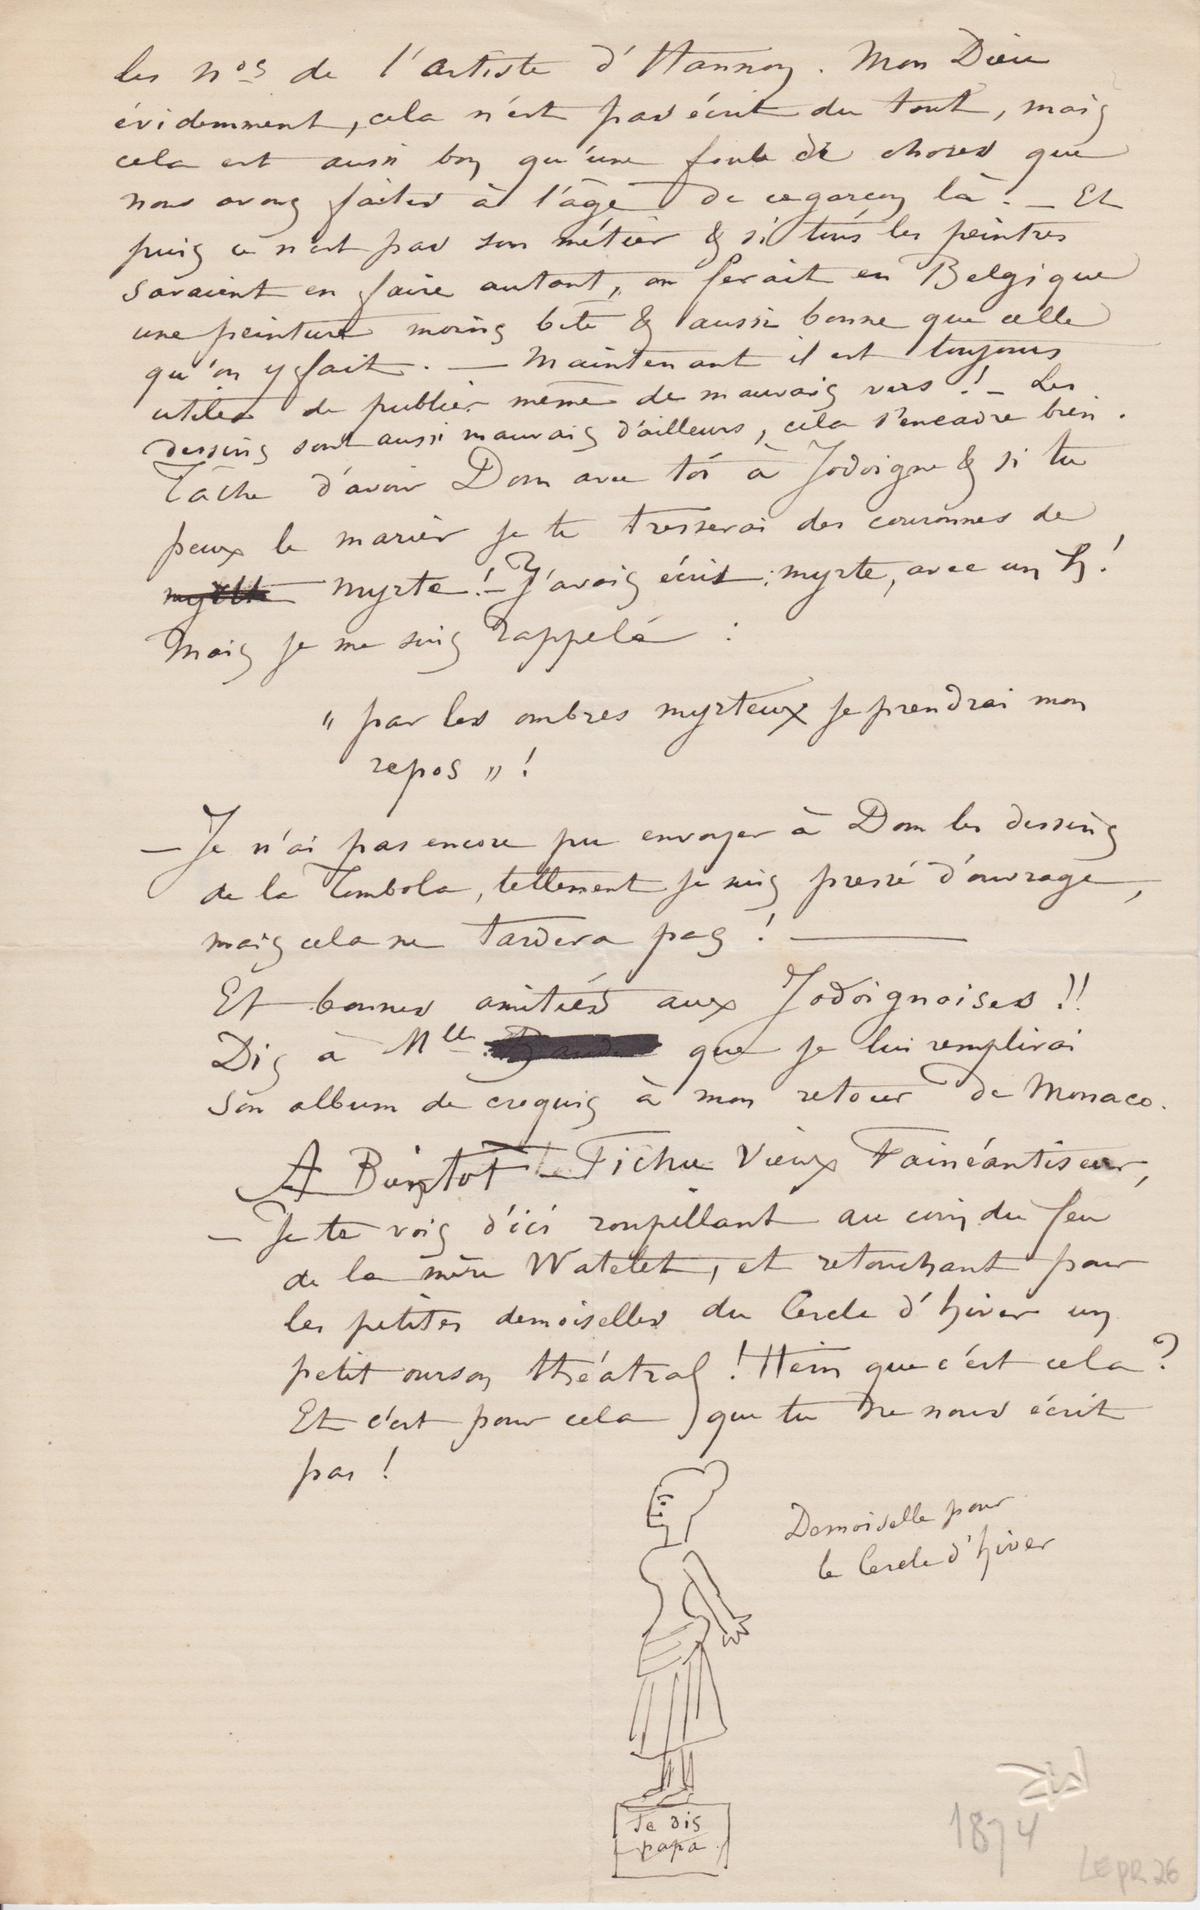 les nos de l'artiste d'Hannon. Mon Dieu
évidemment, cela n'est pas écrit du tout, mais
cela est aussi bon qu'une foule de choses que
nous avons faites à l'âge de ce garçon là. — Et
puis ce n'est pas son métier & si tous les peintres
savaient en faire autant, on ferait en Belgique
une peinture moins bête & aussi bonne que celle
qu'on y fait. — Maintenant il est toujours
utile de publier même de mauvais vers ! — Les
dessins sont aussi mauvais d'ailleurs, cela s'encadre bien.
Tâche d'avoir Dom avec toi à Jodoigne & si tu
peux le marier je te tresserai des couronnes de
myrte ! — J'avais écrit : myrte, avec un h !
Mais je me suis rappelé :
" par les ombres myrteux je prendrai mon
repos " !
— Je n'ai pas encore pu envoyer à Dom les dessins
de la Tombola, tellement je suis pressé d'ouvrage,
mais cela ne tardera pas ! —
Et bonnes amitiés aux Jodoignoises !!
Dis à Mlle que je lui remplirai
son album de croquis à mon retour de Monaco.
A Bientôt Fichu Vieux Fainéantiseur,
— Je te vois d'ici roupillant au coin du feu
de la mère Watelet, et retouchant pour
les petites demoiselles du Cercle d'hiver un
petit ourson théâtral ! Hein que c'est cela ?
Et c'est pour cela que tu ne nous écrit
pas !
Demoiselle pour
le Cercle d'hiver
Je dis
papa.
1874
LEpR 26